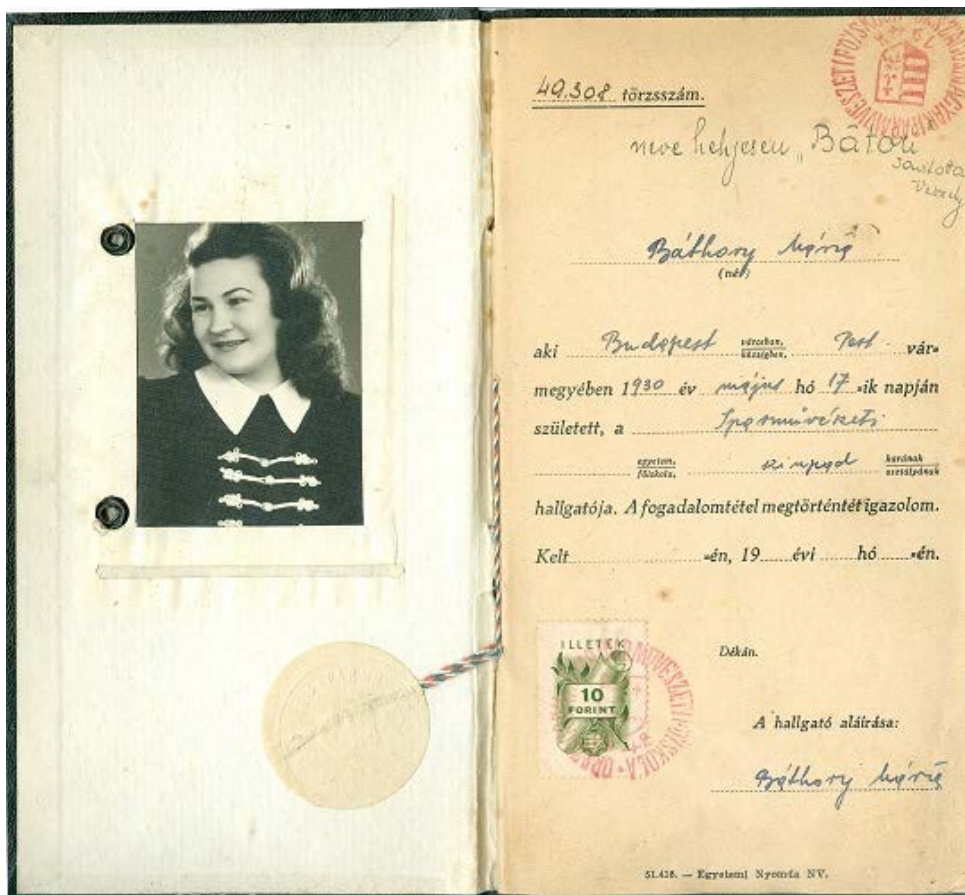 49.308 törzsszám.
neve helyesen „Bátori
javította
Báthory Mária
(név)
aki Budapest városban, községben, Pest vár-
megyében 1930 év május hó 17-ik napján
született, a Iparművészeti
egyetem, főiskola, színpad karának osztályának
hallgatója. A fogadalomtétel megtörténtét igazolom.
Kelt -én, 19 évi hó -én.
ILLETÉK
10
FORINT
Dékán.
A hallgató aláírása:
Báthory Mária
51.416. — Egyetemi Nyomda NV.